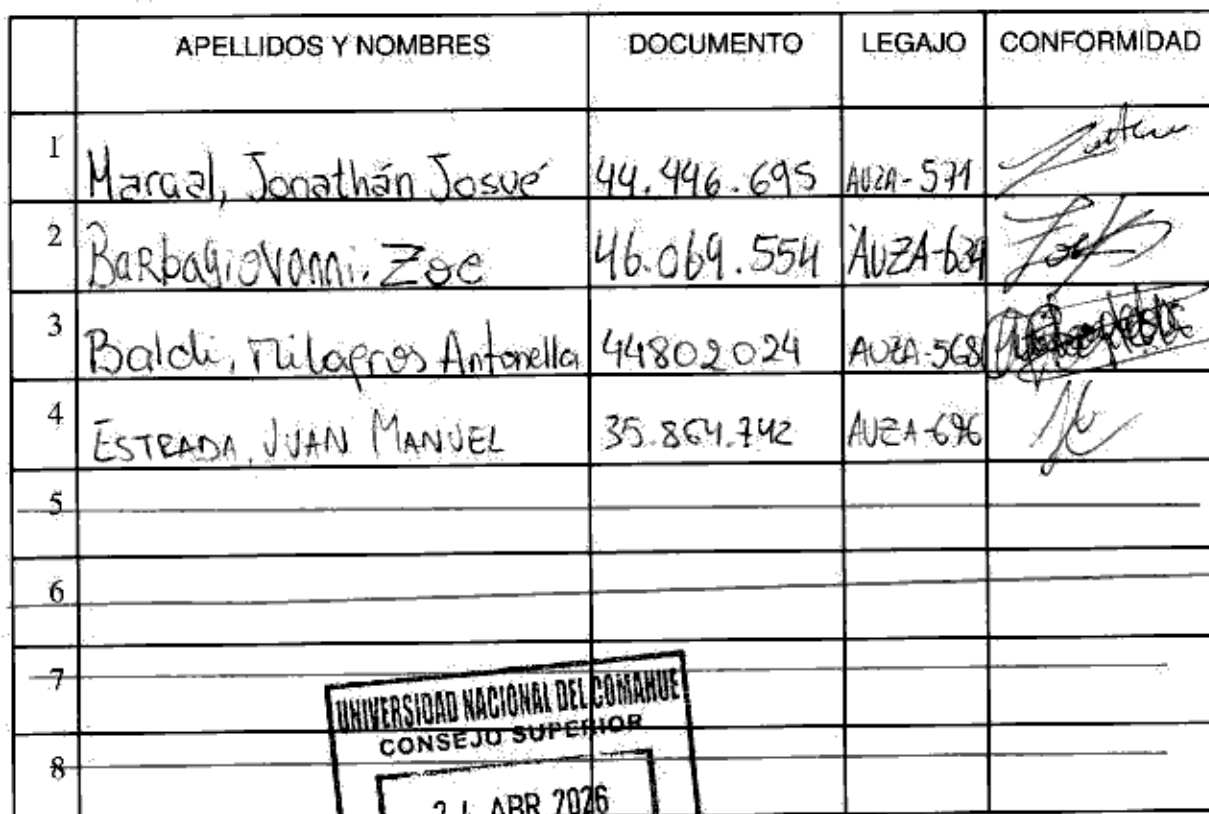 APELLIDOS Y NOMBRES DOCUMENTO LEGAJO CONFORMIDAD
1 Marcal, Jonathán Josué 44.446.695 AUZA-571
2 Barbagiovanni, Zoe 46.069.554 AUZA-639
3 Baldi, Milagros Antonella 44802024 AUZA-568
4 ESTRADA, JUAN MANUEL 35.864.742 AUZA-696
5
6
7
UNIVERSIDAD NACIONAL DEL COMAHUE
CONSEJO SUPERIOR
8
ABR 2026